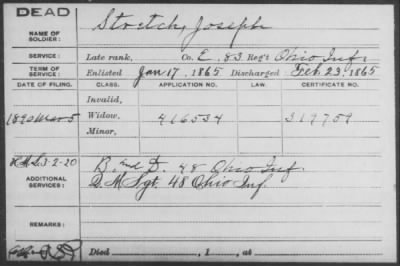 DEAD
Stretch, Joseph
NAME OF SOLDIER:
SERVICE: Late rank, Co. E, 83 Reg't Ohio Inf.
TERM OF SERVICE: Enlisted Jan 17, 1865 Discharged Feb. 23, 1865
DATE OF FILING. CLASS. APPLICATION NO. LAW. CERTIFICATE NO.
Invalid,
1890 Mar 5 Widow, 416534 319759
Minor,
3-2-20 B. and D. 48 Ohio Inf.
ADDITIONAL SERVICES: Q. M. Sgt. 48 Ohio Inf.
REMARKS:
Died , 1 , at